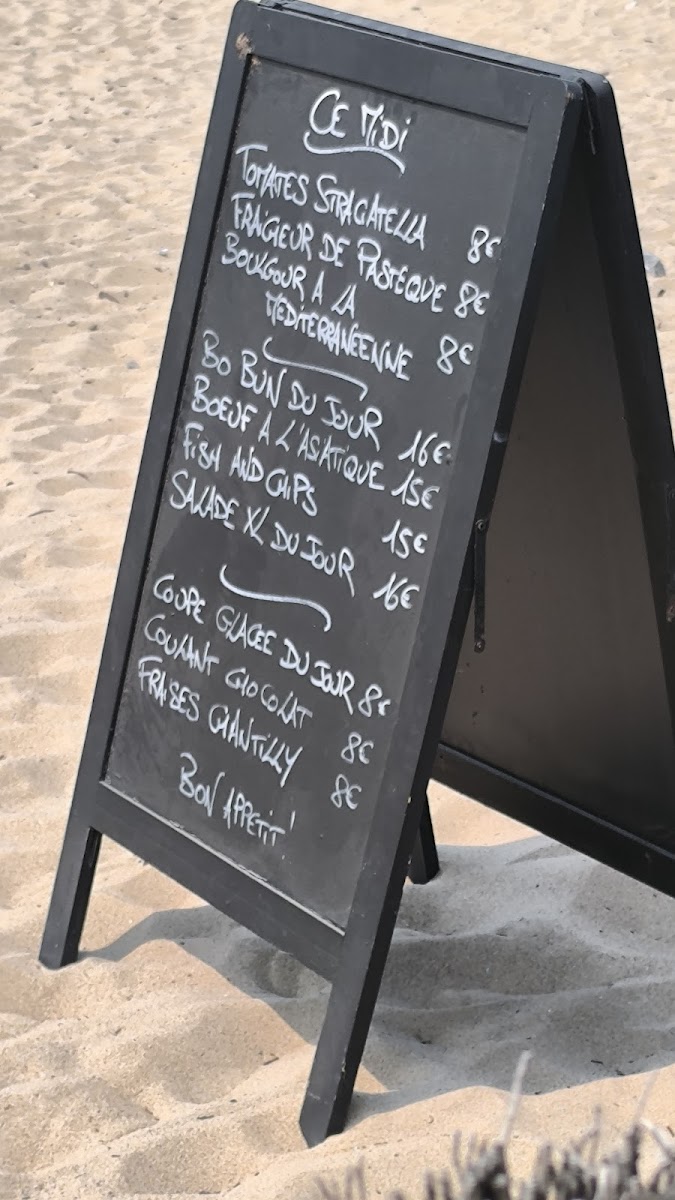 CE MIDI
TOMATES STRACATELLA 8€
FRAÎCIEUR DE PASTEQUE 8€
BOULGOUR A LA
MÉDITERRANÉENNE 8€
BO BUN DU JOUR 16€
BOEUF A L'ASIATIQUE 15€
FISH AND CHIPS 15€
SALADE XL DU JOUR 16€
COUPE GLACEE DU JOUR 8€
COULANT CHOCOLAT 8€
FRAISES CHANTILLY 8€
BON APPETIT!